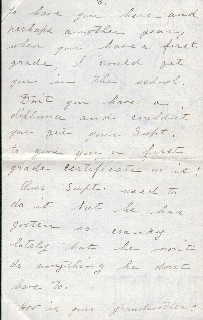 to have you here and
perhaps another year,
when you have a first
grade I could get
you in this school.
Don't you have a
diploma and couldn't
you get your Supt.
to give you a first
grade certificate on it?
Our Supt. used to
do it but he has
gotten so cranky
lately that he won't
do anything he don't
have to.
How is your grandmother?